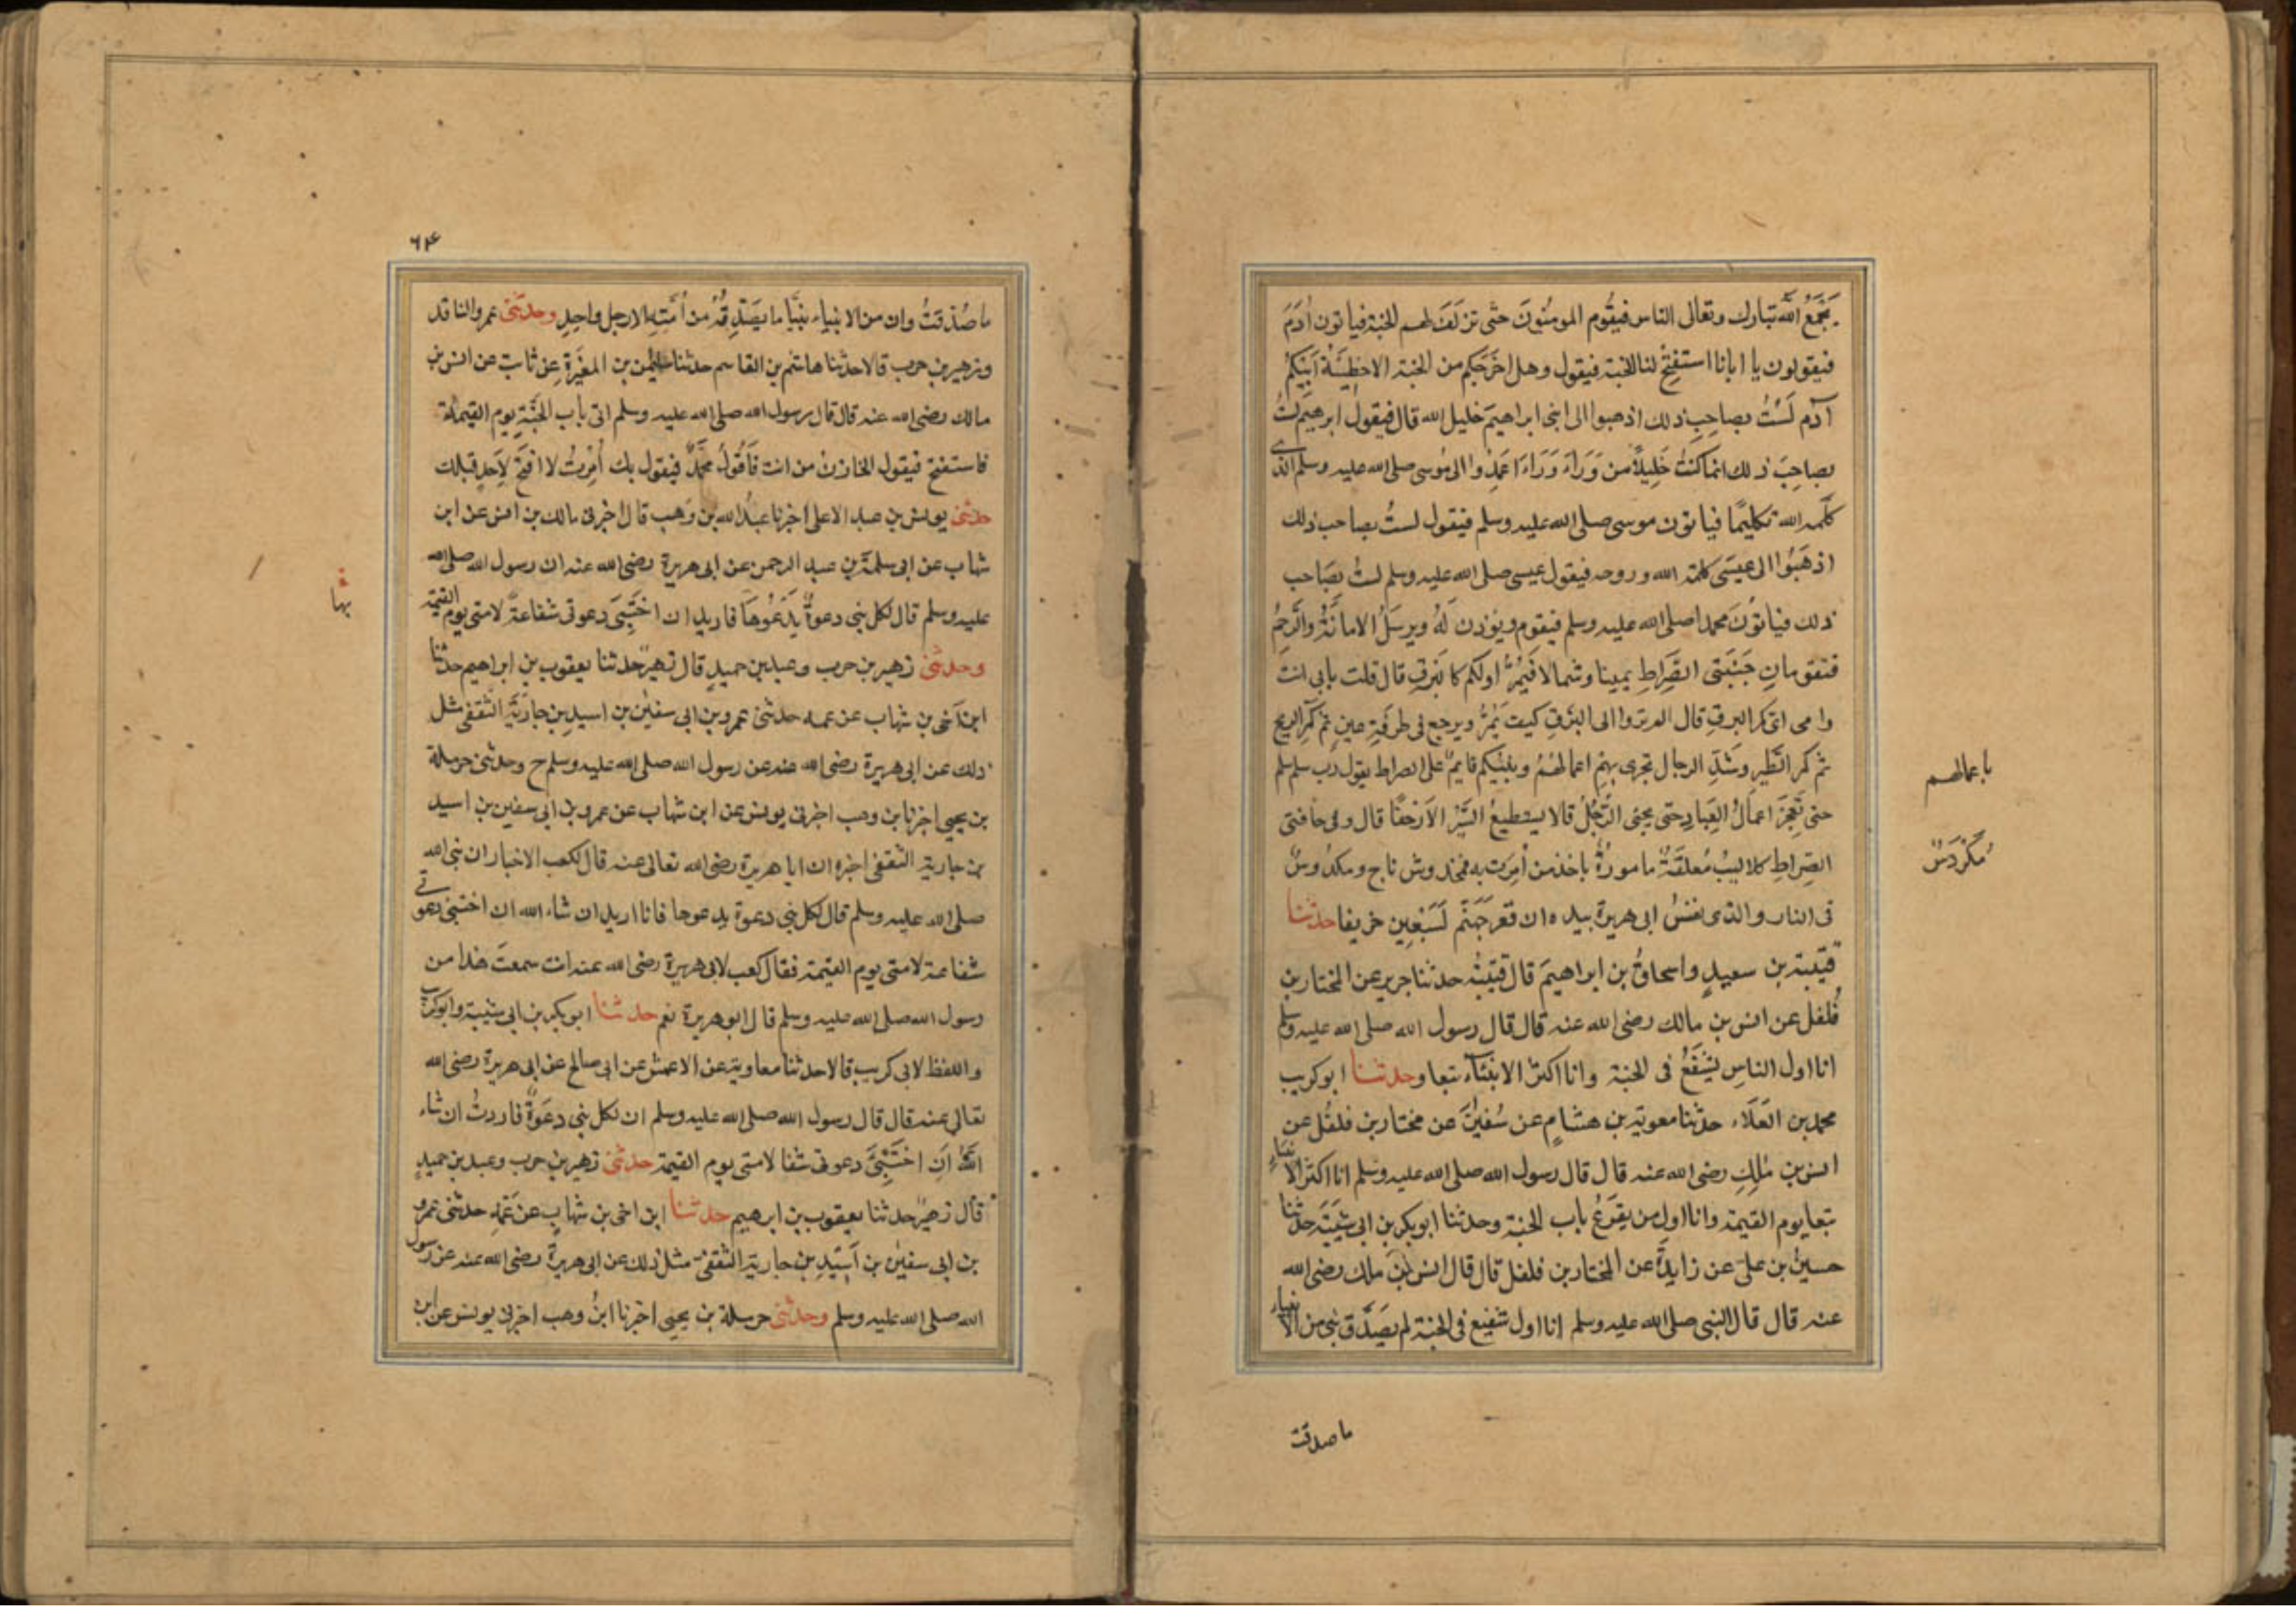 يَجْمَعُ اللّٰه تبارك وتعالى الناس فيقُوم المومنُونَ حتى تزلَفَ لهم الجنة فياتون اٰدَمَ
فيقولون يا ابانا استفتِحْ لنا الجنة فيقول وهل اخرَجَكم من الجنة الا خطِيْئَةُ اَبِيكُمْ
آدم لَسْتُ بصاحِبِ ذلك اذهبوا الى ابنى ابراهيمَ خليل الله قال فيقولُ ابرهيم لستُ
بصاحِبِ ذلك انما كنتُ خَلِيلاً من وَرَاءَ وَرَاءَ اعمِدُوا الى مُوسى صلى الله عليه وسلم الذى
كلّمه الله تكليمًا فياتون موسى صلى الله عليه وسلم فيقول لستُ بصاحب ذلك
اذهَبُوا الى عيسَى كلمة الله وروحه فيقول عيسى صلى الله عليه وسلم لستُ بصَاحب
ذلك فياتُونَ محمدا صلى الله عليه وسلم فيقوم ويؤذن لَهُ ويرسَلُ الامانَةُ والرَّحِمُ
فتقومانِ جَنَبَتَى الصِّراطِ يمينا وشمالا فَيَمُرُّ اولكم كالبَرقِ قال قلت بابى انت
وامى اىّ كمر البرقِ قال الم تروا الى البَرقِ كيف يَمُرُّ ويرجع فى طرفَةِ عينٍ ثم كمَرِّ الريح
ثم كمر الطَّيرِ وشَدِّ الرجال تجرى بهم اعمالهُمْ ونبيُّكم قايمٌ على الصراط يقول رب سلم سلم
حتى تَعجِزَ اعمالُ العِبادِ حتى يجئى الرَّجُلُ فلا يستطيعُ السَّيْرَ الا زحفًا قال وفى حافتى
الصِّراطِ كلاليبُ مُعلقَةٌ مامورةٌ باخذ من اُمِرَت به فمخدوش ناج ومكدوسٌ
فى النار والذى نفسُ ابى هريرة بيده ان قعر جَهَنَّم لَسَبْعِين خريفا حدثنا
قتيبة بن سعيدٍ واسحاقُ بن ابراهيمَ قال قتَيبَةُ حدثنا جرير عن المختار بن
فُلفل عن انس بن مالك رضى الله عنه قال قال رسول الله صلى الله عليه وسلم
انا اول الناسِ يشفَعُ فى الجنة وانا اكثر الانبيَاء تبعا وحدثنا ابو كريب
محمد بن العَلَاء حدثنا معوية بن هشامٍ عن سُفيٰنَ عن مختار بن فلفُل عن
انس بن مٰلِكٍ رضى الله عنه قال قال رسول الله صلى الله عليه وسلم انا اكثر الانبياءِ
تبعا يوم القيمة وانا اول من يقرَعُ باب الجنة وحدثنا ابو بكر بن ابى شيبَةَ حدثنا
حسينُ بن علىّ عن زايدَةَ عن المختار بن فلفل قال قال انس بن مالك رضى الله
عنه قال قال النبى صلى الله عليه وسلم انا اول شفيع فى الجنة لم يصَدَّق نبى من الانبياء
باعمالهم
مُكَرْدَسٌ
ما صدقت
٦٤
ما صُدّقتُ وان من الانبياء نبيًّا ما يصَدِّقُهُ من اُمَّتِه الا رجل واحدٍ وحدثنى عمرو الناقد
وزهير بن حرب قالا حدثنا هاشم بن القاسم حدثنا سليمٰن بن المغيرَةِ عن ثابت عن انس بن
مالك رضى الله عنه قال قال رسول الله صلى الله عليه وسلم اتى باب الجنَّةِ يوم القيمة
فاستفتح فيقول الخازنُ من انت فَاَقُولُ محمَّدٌ فيقول بك اُمِرتُ لا افتَحُ لاَحَدٍ قبلك
حدثنى يونس بن عبد الاعلى اخبرنا عبدُ الله بن وَهب قال اخبرنى مالك بن انس عن ابن
شهاب عن ابى سلمَة بن عبد الرحمن عن ابى هريرة رضى الله عنه ان رسول الله صلى الله
عليه وسلم قال لكل نبى دعوةٌ يَدعُوهَا فاريد ان اختَبِىَ دعوتى شفاعةً لامتى يوم القيمة
وحدثنى زهير بن حرب وعبد بن حميدٍ قال زهيرٌ حدثنا يعقوب بن ابراهيم حدثنا
ابن اَخى بن شهاب عن عمه حدثنى عمرو بن ابى سفيٰن بن اسيدِ بن جاريَةَ الثقفى مثل
ذلك عن ابى هريرة رضى الله عنه عن رسول الله صلى الله عليه وسلم ح وحدثنى حرملة
بن يحيى اخبرنا بن وهب اخبرنى يونس عن ابن شهاب عن عمرو بن ابى سفين بن اسيد
بن جارية الثقفى اخبره ان ابا هريرة رضى الله تعالى عنه قال لكعب الاحبار ان نبى الله
صلى الله عليه وسلم قال لكل نبى دعوة يدعوها فانا اريد ان شاء الله ان اختبئى دعوتى
شفاعة لامتى يوم القيمة فقال كعب لابى هريرة رضى الله عنه انت سمعتَ هذا من
رسول الله صلى الله عليه وسلم قال ابو هريرة نعم حدثنا ابو بكر بن ابى شيبة وابو كريب
واللفظ لابى كريب قالا حدثنا معاوية عن الاعمش عن ابى صالح عن ابى هريرة رضى الله
تعالى عنه قال قال رسول الله صلى الله عليه وسلم ان لكل نبى دعَوةٌ فاردتُ ان شاء
اللّٰه اَن اختَبِئَ دعوتى شفا لامتى يوم القيمة حدثنى زهير بن حرب وعبد بن حميدٍ
قال زهيرٌ حدثنا يعقوب بن ابرهيم حدثنا ابن اخى بن شهابٍ عن عَمِّهِ حدثنى عمرو
بن ابى سفيٰن بن اَسِيْدِ بن جارية الثقفى مثل ذلك عن ابى هريرةَ رضى الله عنه عن رسول
الله صلى الله عليه وسلم وحدثنى حرملة بن يحيى اخبرنا ابنُ وهب اخبرنى يونس عن ابن
بها